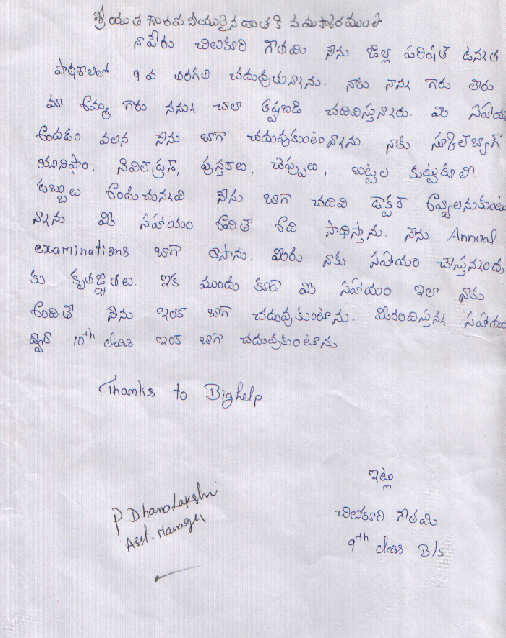 శ్రీయుత గౌరవనీయులైన యాతకి నమస్కారములతో
నాపేరు చిలుకూరి గౌతమి నేను జిల్లా పరిషత్ ఉన్నత
పాఠశాలలో 9వ తరగతి చదువుతున్నాను. నాకు నాన్న గారు లేరు
మా అమ్మ గారు నన్ను చాలా కష్టపడి చదివిస్తున్నారు. మీ సహాయం
అందడం వలన నేను బాగా చదువుకుంటున్నాను. నాకు స్కూల్‌బ్యాగ్
యూనిఫాం, పుస్తకాలు, చెప్పులు, బట్టలు కుట్టుకూలి
డబ్బులు అందుచున్నవి నేను బాగా చదివి డాక్టర్ అవ్వాలనుకుంటు
న్నాను మీ సహాయం ఉంటే అది సాధిస్తాను. నేను Annual
examinations బాగా రాసాను. మీరు నాకు సహాయం చేస్తున్నందు
కు కృతజ్ఞతలు. ఇక ముందు కూడా మీ సహాయం ఇలా నాకు
అందితే నేను ఇంకా బాగా చదువుకుంటాను. మీరందిస్తున్న సహాయం
ద్వారా 10th class ఇంకా బాగా చదువుకుంటాను
Thanks to Bighelp
ఇట్లు
చిలుకూరి గౌతమి
9th class B/s
P Dhanalakshi
Asst. manager